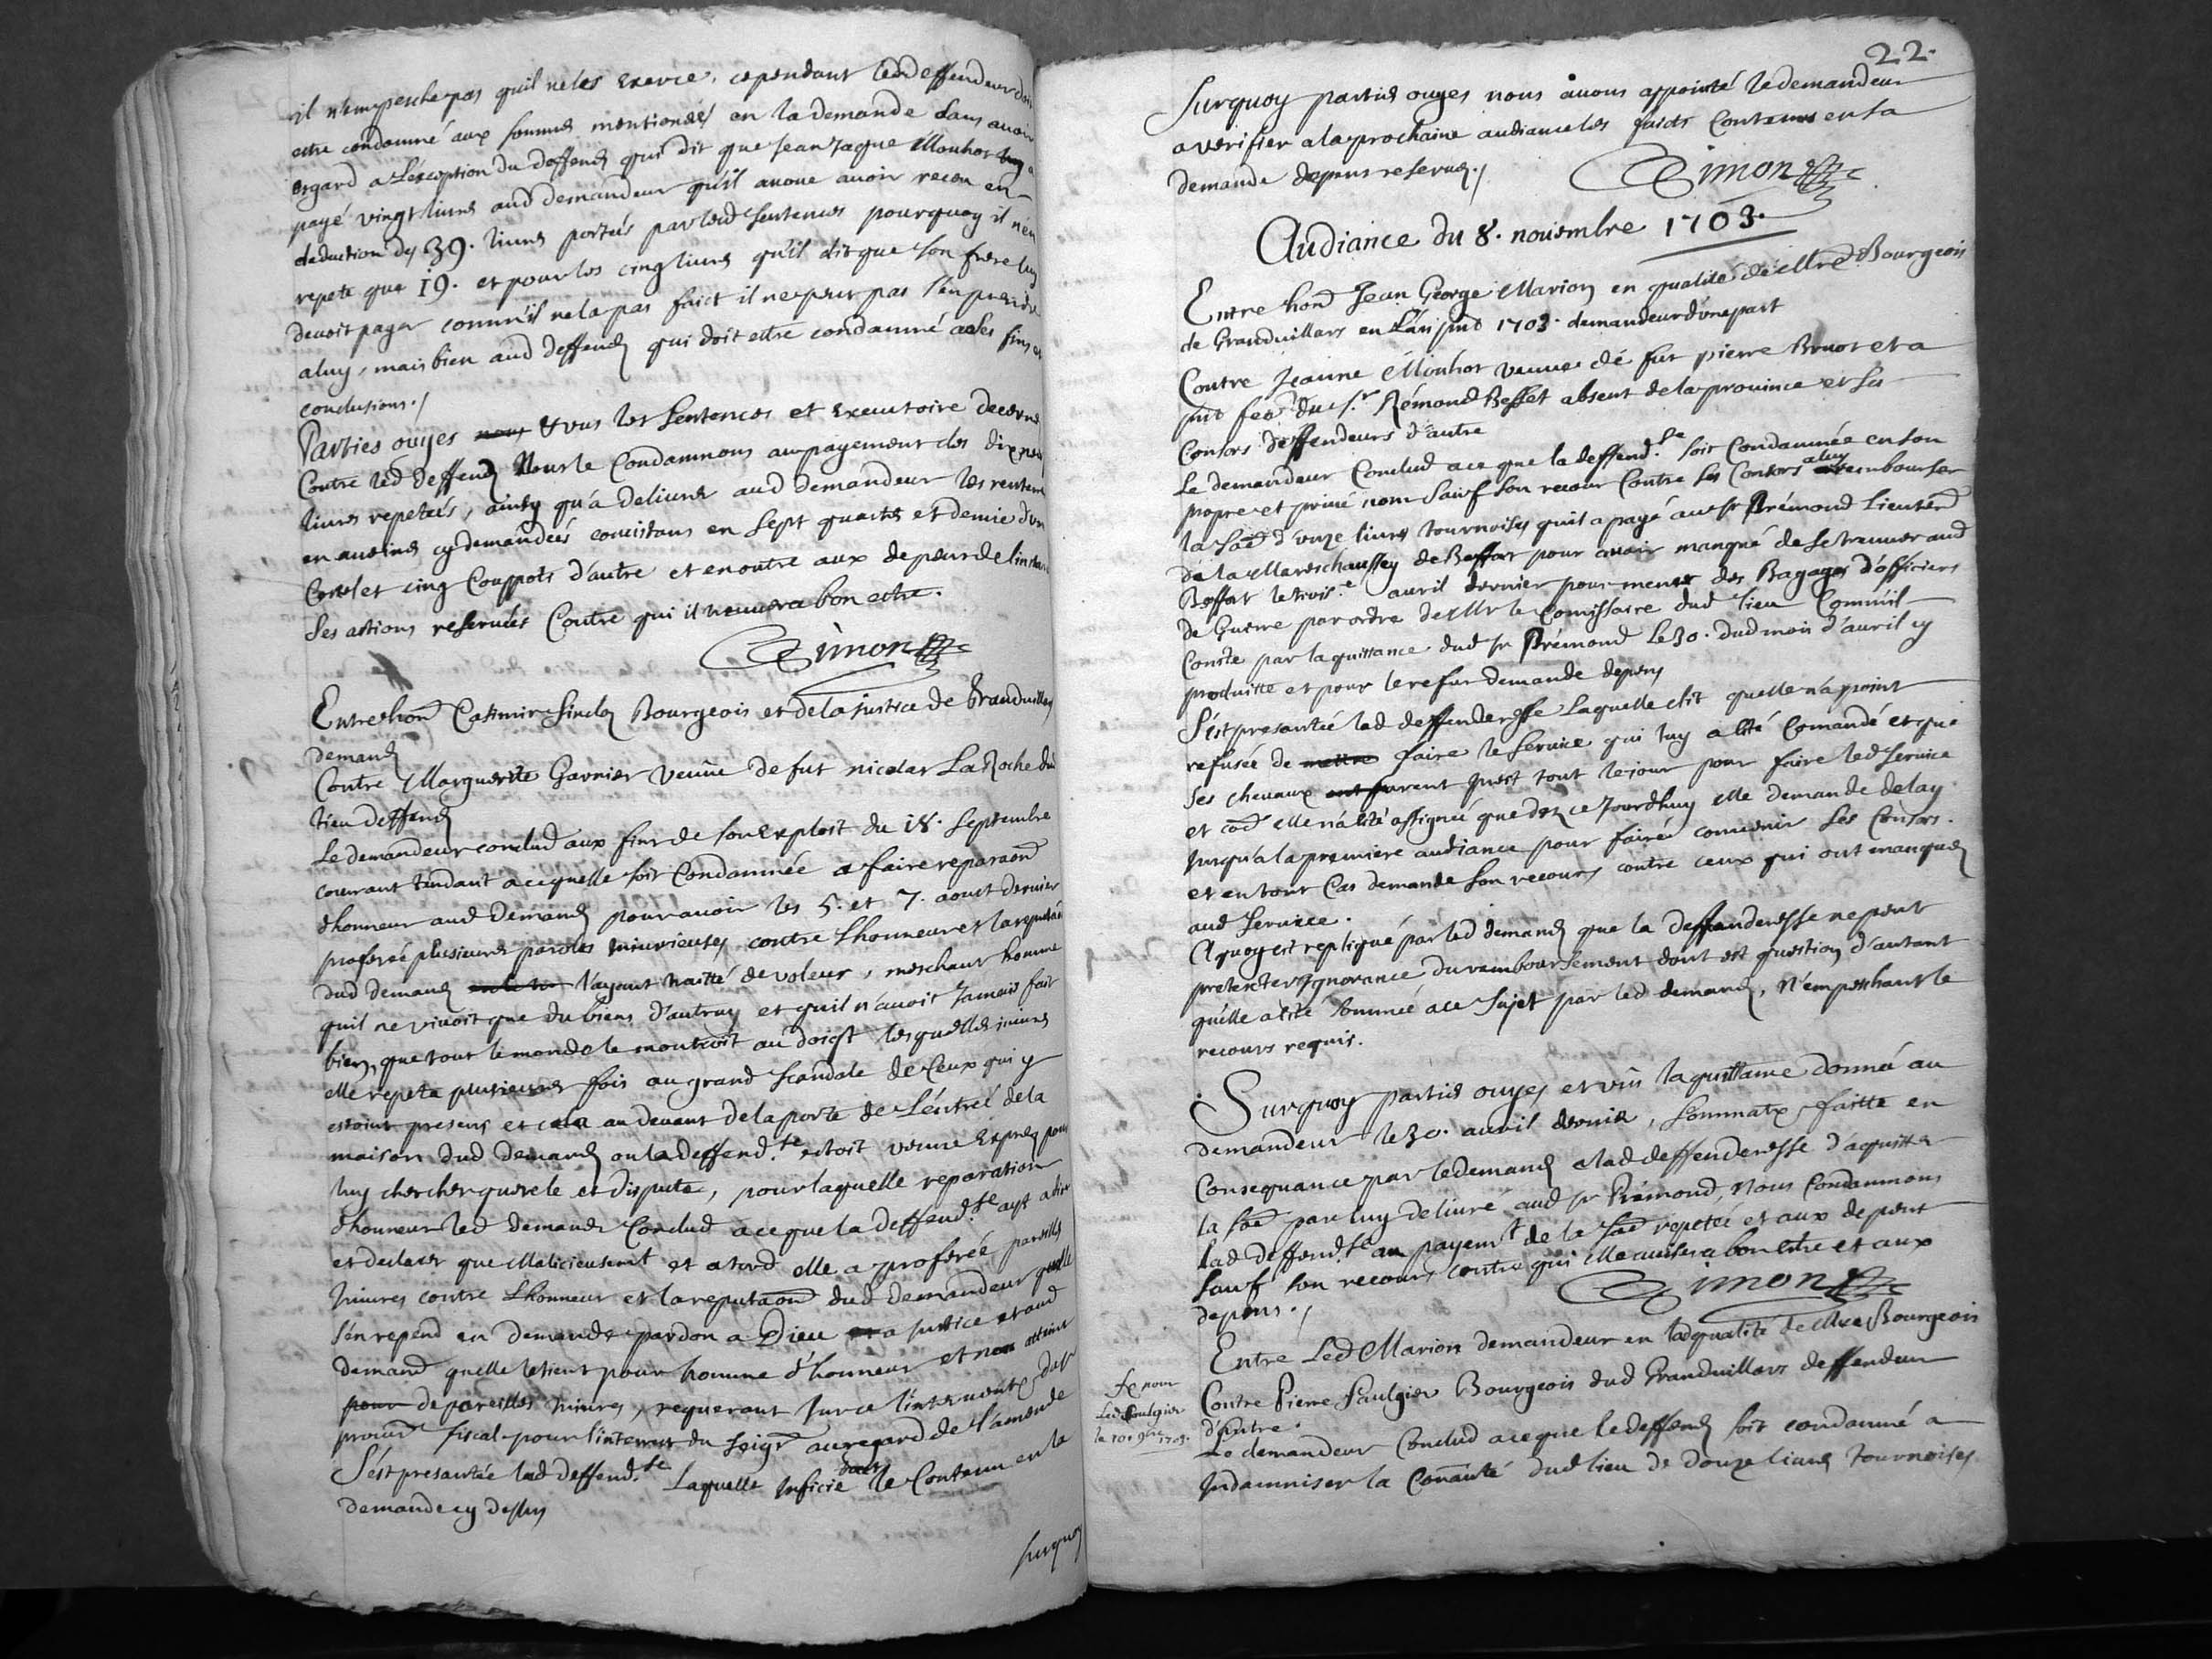 il n'empesche pas quil ne les exerce, cependant led deffendeur doit
estre condamné aux sommes mentionées en la demande sans avoir
esgard a L'exception du deffend qui dit que Jean Jaque Monhot luy a
payé vingt livres aud demandeur qu'il avoue avoir receu en
deduction des 39. livres portés par led sentences pourquoy il n'en
repete que 19. et pour les cinq livres qu'il dit que son frere luy
devoit payer comm'il ne la pas faict il ne peut pas s'en prendre
a luy, mais bien aud deffend qui doit estre condamné a ses fins et
conclusions./
Parties ouyes nous & vus les sentences et executoire decerné
Contre led deffend Nous le Condamnons au payement des dix neuf
livres repetées, ainsy qu'a delivrer aud demandeur les rentes
en aveine cy demandées concistans en sept quartes et demie d'un
Costé et cinq Couppots d'autre et en outre aux depens de l'instance
Ses actions reservées Contre qui il trouvera bon estre.
Simon
Entre hon Casimir Sinclo Bourgeois et de la justice de Grandvillars
demand
Contre Marguerite Garnier veuve de fut nicolas LaRoche dud
lieu deffend
Le demandeur conclud aux fins de son Exploit du 18. Septembre
courant tendant a ce quelle soit Condamnée a faire reparaon
d'honneur aud Demand pour avoir les 5. et 7. aoust dernier
proferée plusieures paroles iniurieuses contre L'honneur et la reputaon
dud demand l'ayant traitté de voleur, meschant homme
quil ne vivoit que du biens d'autruy et quil n'avoit Jamais fait
bien, que tout le monde le montroit au doigt lesquelles iniures
elle repeta plusieures fois au grand scandale de Ceux qui y
estoint presens et cela au devant de la porte de L'entrée de la
maison dud demand ou la deffend.se estoit venue Expres pour
luy chercher querele et dispute, pour laquelle reparation
d'honneur led demand Conclud a ce que la deffend.se ayt a dire
et declarer que Malicieusemt et a tord elle a proferée pareilles
Iniures contre L'honneur et la reputaon dud demandeur quelle
s'en repend en demande pardon a Dieu et a Justice et aud
demand quelle le tient pour homme d'honneur et non atteint
pour de pareilles iniures, requerant sur ce l'intervent du Sr
procur fiscal pour l'interrest du seigr au regard de l'amende
S'est presentée lad deffend.se Laquelle Inficie le Contenu en la
demande cy dessus
surquoy
22.
Surquoy parties ouyes nous avons appointé le demandeur
a verifier a la prochaine audiance les faicts Contenus en sa
demande depens reservés./
Simon
Audiance du 8. novembre 1703.
Entre hon Jean George Marion en qualité de Mre Bourgeois
de Grandvillars en L'an pnt 1703. demandeur d'une part
Contre Jeanne Monhot veuve de fut pierre Bruot et a
pnt fe du Sr. Rémond Besset absent de la province et ses
Consors deffendeurs d'autre
Le demandeur Conclud a ce que la deffend.se soit Condamnée en son
propre et privé nom sauf son recour Contre ses Consors a luy rembourser
la soe d'onze livres tournoises quil a payé au Sr Prémond Lieuten
de la Mareschaussey de Beffort pour avoir manqué de se trouver aud
Beffort le trois.e avril dernier pour mener des Bagages d'officiers
de Guerre par ordre de Mr le Comissaire dud lieu Comm'il
Conste par la quittance dud Sr Prémond Le 30. dud mois d'avril cy
produitte et pour le refus demande depens
S'est presantée lad deffenderesse Laquelle dit quelle n'a point
refusée de mettre faire le service qui luy a esté Comandé et que
ses chevaux ont furent prest tout le jour pour faire led service
et coe elle n'a esté assignée que dez ce Jourdhuy elle demande delay
Jusqu'a la premiere audiance pour faire convenir ses Consors.
et en tout Cas demande son recours contre ceux qui ont manqués
aud service.
A quoy est repliqué par led demand que la deffenderesse ne peut
pretexter Ignorance du remboursement dont est question d'autant
qu'elle a esté sommée a ce sujet par led demand, n'empeschant le
recours requis.
Surquoy parties ouyes et vûs la quittance donnée au
demandeur le 30. avril dernier, sommate faitte en
Consequance par le demand a lad deffenderesse d'acquitter
la soe par luy delivré aud Sr Prémond, Nous Condamnons
lad deffend.se au payemt de la soe repetée et aux depens
sauf son recours contre qui elle avisera bon estre et aux
depens./
Simon
Entre Led Marion demandeur en lad qualité de Mre Bourgeois
Contre Pierre Faulgier Bourgeois dud Grandvillars deffendeur
d'Autre.
Le demandeur Conclud a ce que le deffend soit condamné a
Indamniser la Comũnté dud lieu de douze livres tournoises
Ex pour
Led Faulgier
le 10e 9bre 1703.